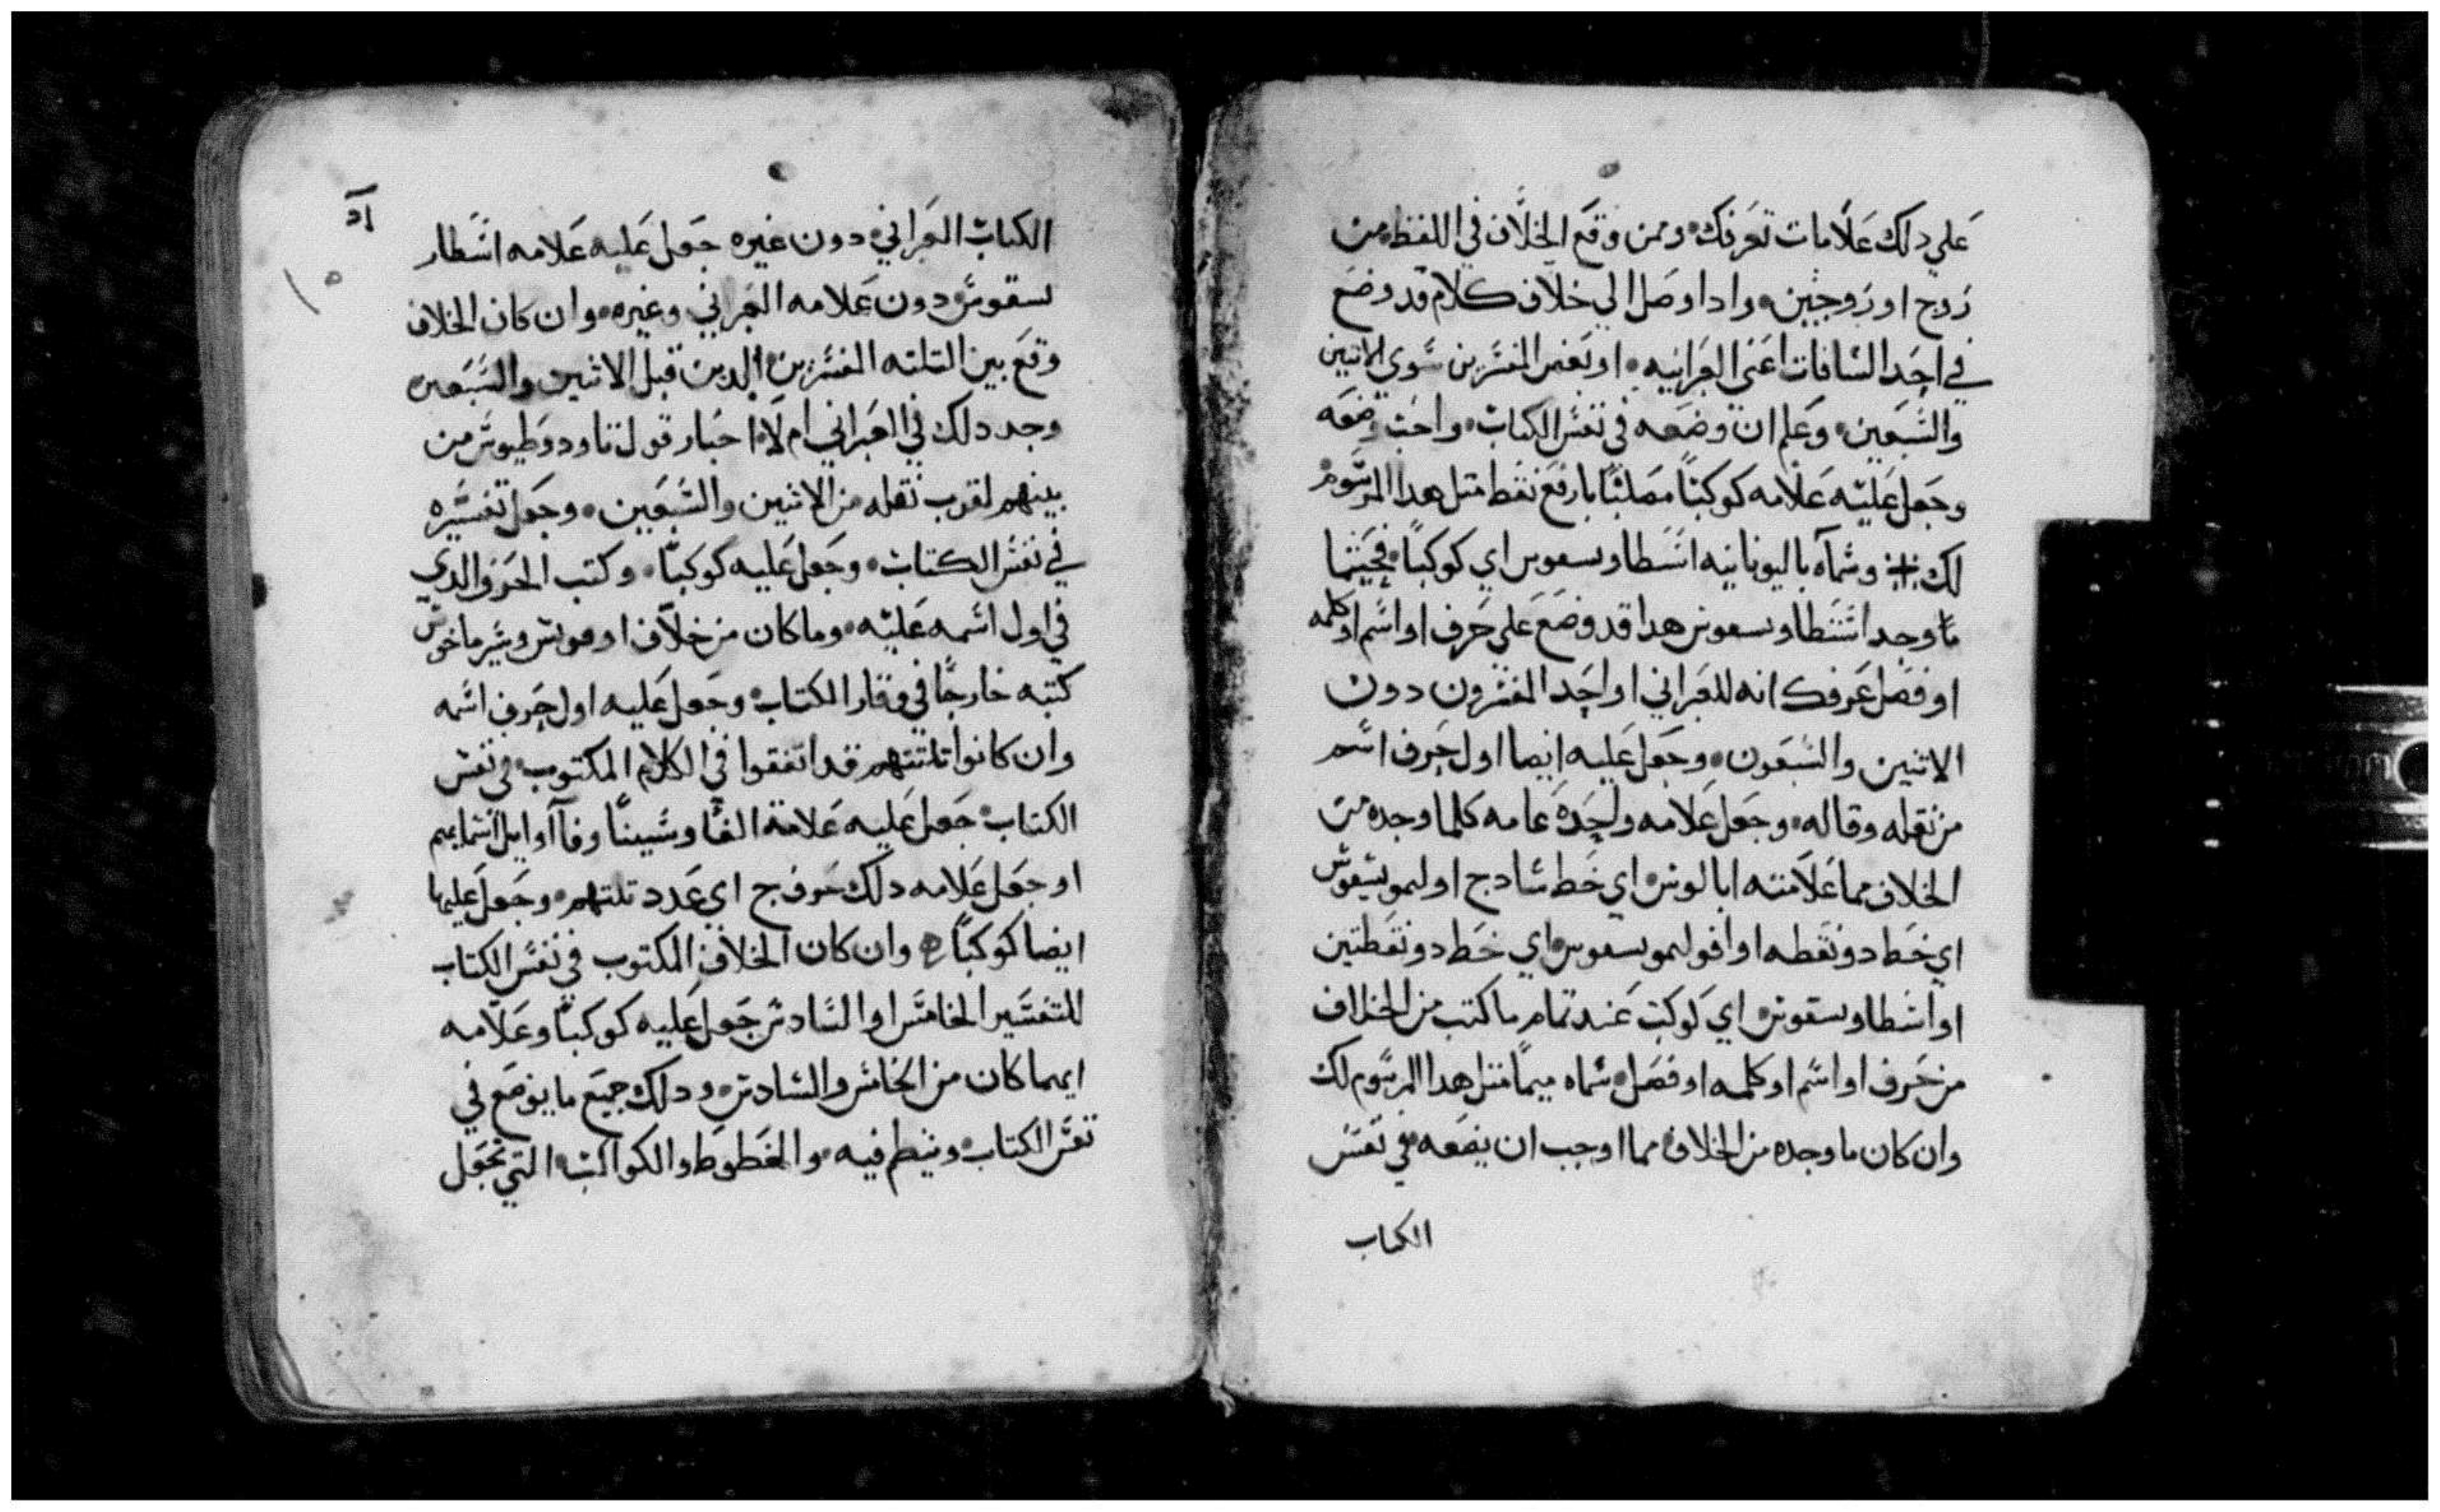 علي دلك علامات تعرفك وممن وقع الخلاف في اللفظ من
زوج او زوجين وادا وصل الي خلاف كلام قد وضع
في احد الساقات اعني العبرانيه او بعض المفسرين سوي الاتنين
والسبعين وعلم ان وضعه في نفس الكتاب واجب وضعه
وجعل عليه علامه كوكبا مصلبا باربع نقط متل هدا المرسوم
لك ※ وسماه باليونانيه اسطاويسقوس اي كوكبا فحيتما
ما وجد اسطاويسقوس هدا قد وضع علي حرف او اسم او كلمه
او فصل عرفك انه للعبراني او احد المفسرون دون
الاتنين والسبعون وجعل عليه ايضا اول حرف اسم
من نقله وقاله وجعل علامه واحده عامه كلما وجده من
الخلاف مما علامته ابالوس اي خط سادج او ليمونيسقوس
اي خط دو نقطه او افوليمونيسقوس اي خط دو نقطتين
او اسطاويسقوس اي كوكب عند تمام ما كتب من الخلاف
من حرف او اسم او كلمه او فصل سماه ميما متل هدا المرسوم لك
وان كان ما وجده من الخلاف مما اوجب ان يضعه في نفس
الكتاب
اد
الكتاب العبراني دون غيره جعل عليه علامه اسطار
يسقوس دون علامه العبراني وغيره وان كان الخلاف
وقع بين التلته المفسرين الدين قبل الاثنين والسبعين
وجد دلك في العبراني ام لا اختار قول تاودوطيوس من
بينهم لقرب نقله من الاثنين والسبعين وجعل تفسيره
في نفس الكتاب وجعل عليه كوكبا وكتب الحرف الدي
في اول اسمه عليه وما كان من خلاف اوموس وسيرماخوس
كتبه خارجا في وقار الكتاب وجعل عليه اول حرف اسمه
وان كانوا تلتتهم قد اتفقوا في الكلام المكتوب في نفس
الكتاب جعل عليه علامة الفا وسينا وفاا اوايل اسمايهم
او جعل علامه دلك حرف ج اي عدد تلتهم وجعل عليها
ايضا كوكبا وان كان الخلاف المكتوب في نفس الكتاب
للتفسير الخامس او السادس جعل عليه كوكبا وعلامه
ايهما كان من الخامس والسادس ودلك جميع ما يوضع في
نفس الكتاب وينظم فيه والخطوط والكواكب التي تجعل